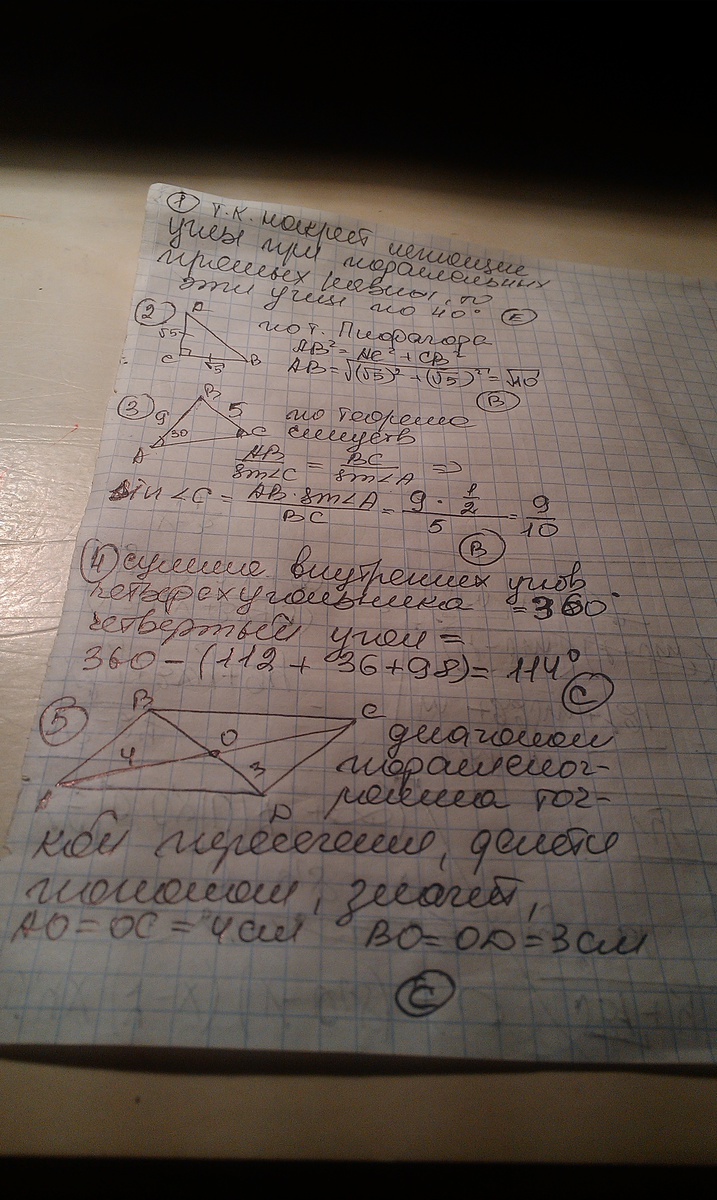 1 т.к. накрест лежащие
углы при параллельных
прямых равны, то
эти углы по 40° E
2 A √5 C √5 B
по т. Пифагора
AB² = AC² + CB²
AB = √(√5)² + (√5)² = √10
B
3 B 9 5 30 A C
по теореме
синусов
AB/sin∠C = BC/sin∠A =>
sin∠C = AB · sin∠A/BC = 9 · 1/2/5 = 9/10
B
4 сумма внутренних углов
четырехугольника = 360°
четвертый угол =
360 - (112 + 36 + 98) = 114°
C
5 B C O 4 3 A D
диагонали
параллелог-
рамма точ-
кой пересечения, делятся
пополам, значит,
AO = OC = 4 см BO = OD = 3 см
C